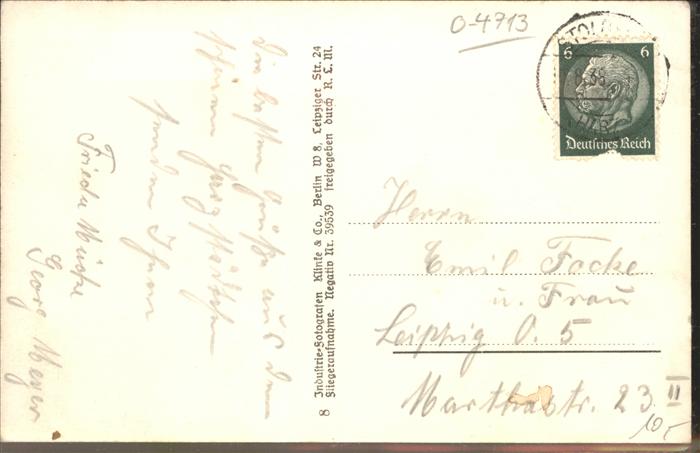 O-4713
STOLB
HARZ
6 6
Deutsches Reich
Die besten Grüße aus dem
schönen Harz
senden Ihnen
Frieda
Georg Meyer
8 Industrie-Fotografen Klinke & Co., Berlin W 8, Leipziger Str. 24
Fliegeraufnahme. Negativ Nr. 39539 freigegeben durch R. L. M.
Herrn
Emil Focke
u. Frau
Leipzig O. 5
Marthastr. 23 II
10,-